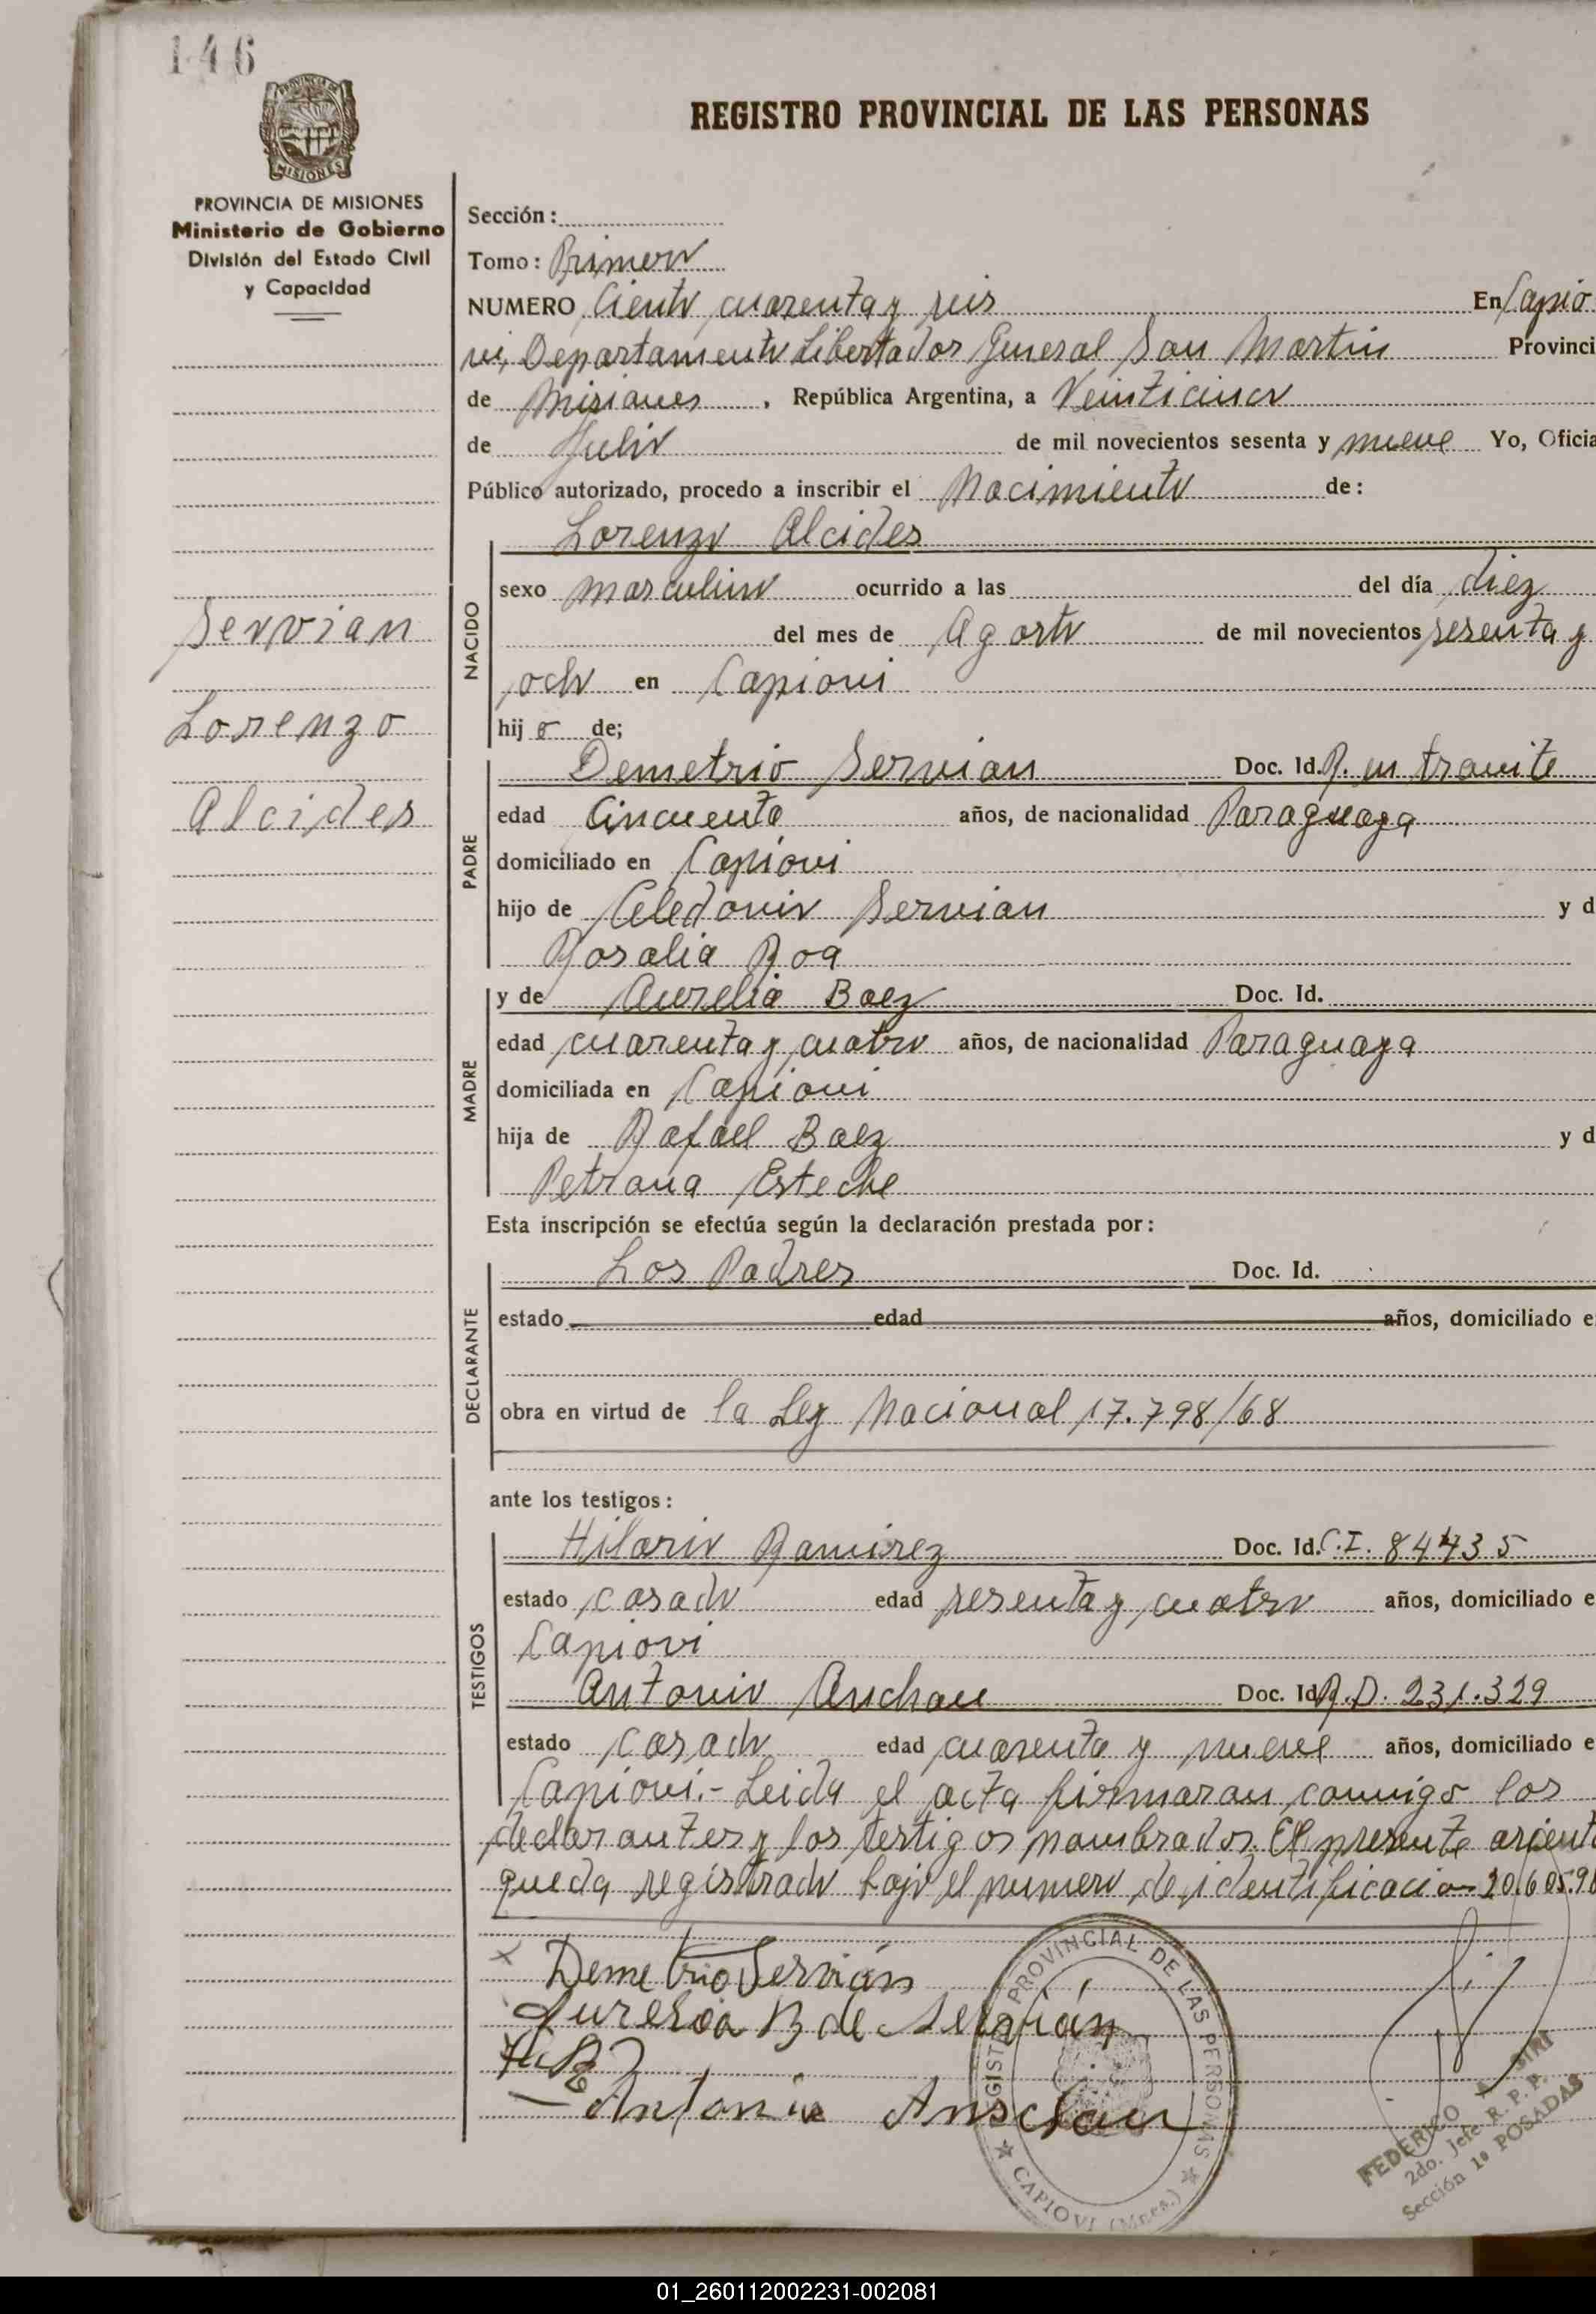 146
PROVINCIA DE MISIONES
REGISTRO PROVINCIAL DE LAS PERSONAS
PROVINCIA DE MISIONES
Ministerio de Gobierno
División del Estado Civil
y Capacidad
Sección:
Tomo: Primero
NUMERO Ciento cuarenta y seis En Capio
vi, Departamento Libertador General San Martin Provinci
de Misiones, República Argentina, a Veinticinco
de Julio de mil novecientos sesenta y nueve Yo, Oficia
Público autorizado, procedo a inscribir el Nacimiento de:
Lorenzo Alcides
Servian
Lorenzo
Alcides
NACIDO
sexo masculino ocurrido a las del día diez
del mes de Agosto de mil novecientos sesenta y
ocho en Capiovi
hijo de;
PADRE
Demetrio Servian Doc. Id. R. en tramite
edad Cincuenta años, de nacionalidad Paraguaya
domiciliado en Capiovi
hijo de Celedonio Servian y d
Rosalia Roa
MADRE
y de Aurelia Baez Doc. Id.
edad cuarenta y cuatro años, de nacionalidad Paraguaya
domiciliada en Capiovi
hija de Rafael Baez y d
Petrona Esteche
Esta inscripción se efectúa según la declaración prestada por:
DECLARANTE
Los Padres Doc. Id.
estado edad años, domiciliado e
obra en virtud de la Ley Nacional 17.798/68
ante los testigos:
TESTIGOS
Hilario Ramirez Doc. Id. C.I. 84435
estado casado edad sesenta y cuatro años, domiciliado e
Capiovi
Antonio Anchau Doc. Id. R.D. 231.329
estado casado edad cuarenta y nueve años, domiciliado e
Capiovi.- Leida el acta firmaran conmigo los
declarantes y los testigos nombrados. El presente asient
queda registrado bajo el numero de identificacion 20.605.9
x Demetrio Servián
Aurelia B de Servián
Antonio Anschau
REGISTRO PROVINCIAL DE LAS PERSONAS
CAPIOVI (Mnes.)
FEDERICO A. SIRI
2do. Jefe R. P. P.
Sección 1º POSADAS
01_260112002231-002081